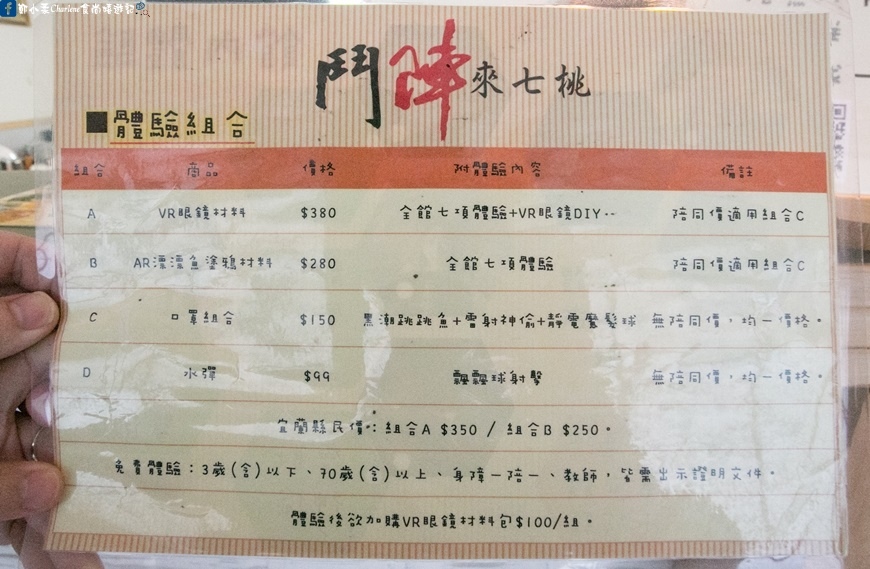 鄧小葉Charlene食尚旅遊記
鬥陣來七桃
■體驗組合
組合 商品 價格 附體驗內容 備註
A VR眼鏡材料 $380 全館七項體驗+VR眼鏡DIY 陪同價適用組合C
B AR漂漂魚塗鴉材料 $280 全館七項體驗 陪同價適用組合C
C 口罩組合 $150 黑潮跳跳魚+雷射神偷+靜電鬆髮球 無陪同價,均一價格。
D 水彈 $99 飄飄球射擊 無陪同價,均一價格。
宜蘭縣民價:組合A $350 / 組合B $250。
免費體驗:3歲(含)以下、70歲(含)以上、身障一陪一、教師,皆需出示證明文件。
體驗後欲加購VR眼鏡材料包$100/組。